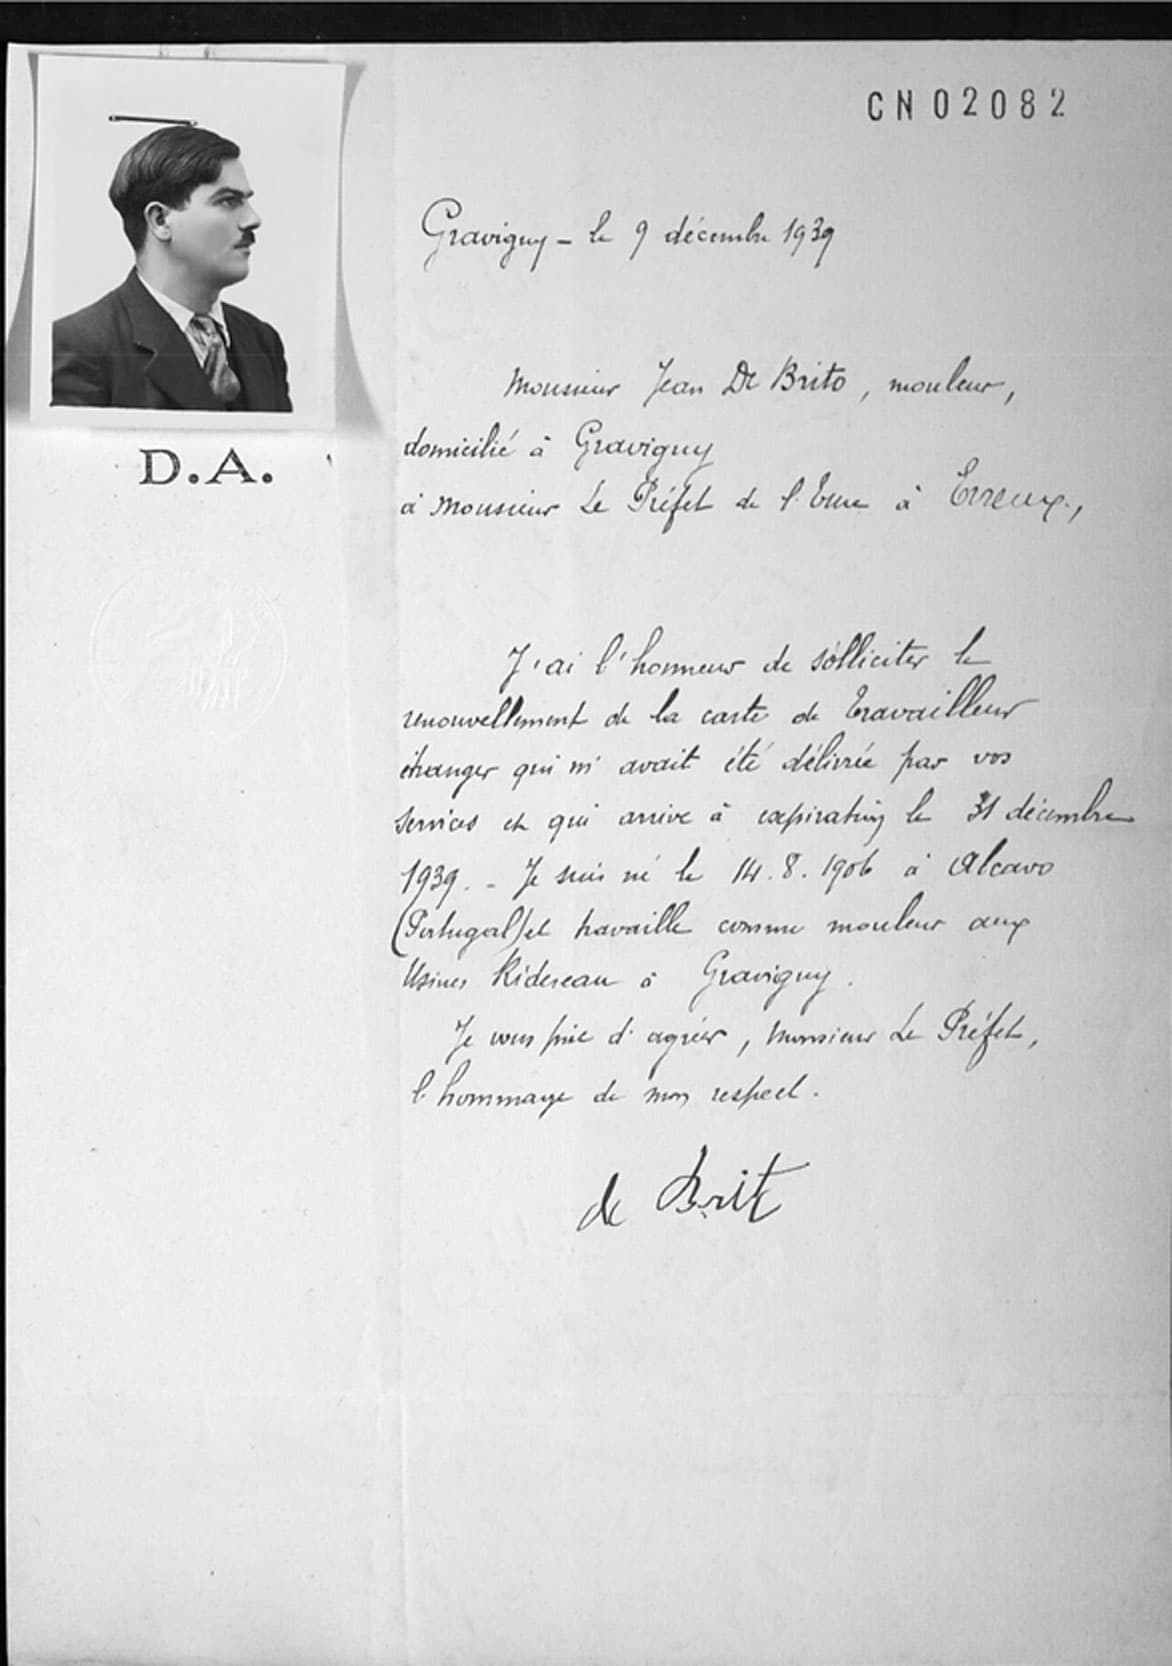 CN02082
Gravigny - le 9 décembre 1939
Monsieur Jean De Brito, mouleur,
domicilié à Gravigny
à Monsieur Le Préfet de l'Eure à Evreux,
D.A.
J'ai l'honneur de solliciter le
renouvellement de la carte de travailleur
étranger qui m'avait été délivrée par vos
services et qui arrive à expiration le 31 décembre
1939. - Je suis né le 14.8.1906 à Alcavo
(Portugal) et travaille comme mouleur aux
Usines Ridereau à Gravigny.
Je vous prie d'agréer, Monsieur Le Préfet,
l'hommage de mon respect.
de Brito